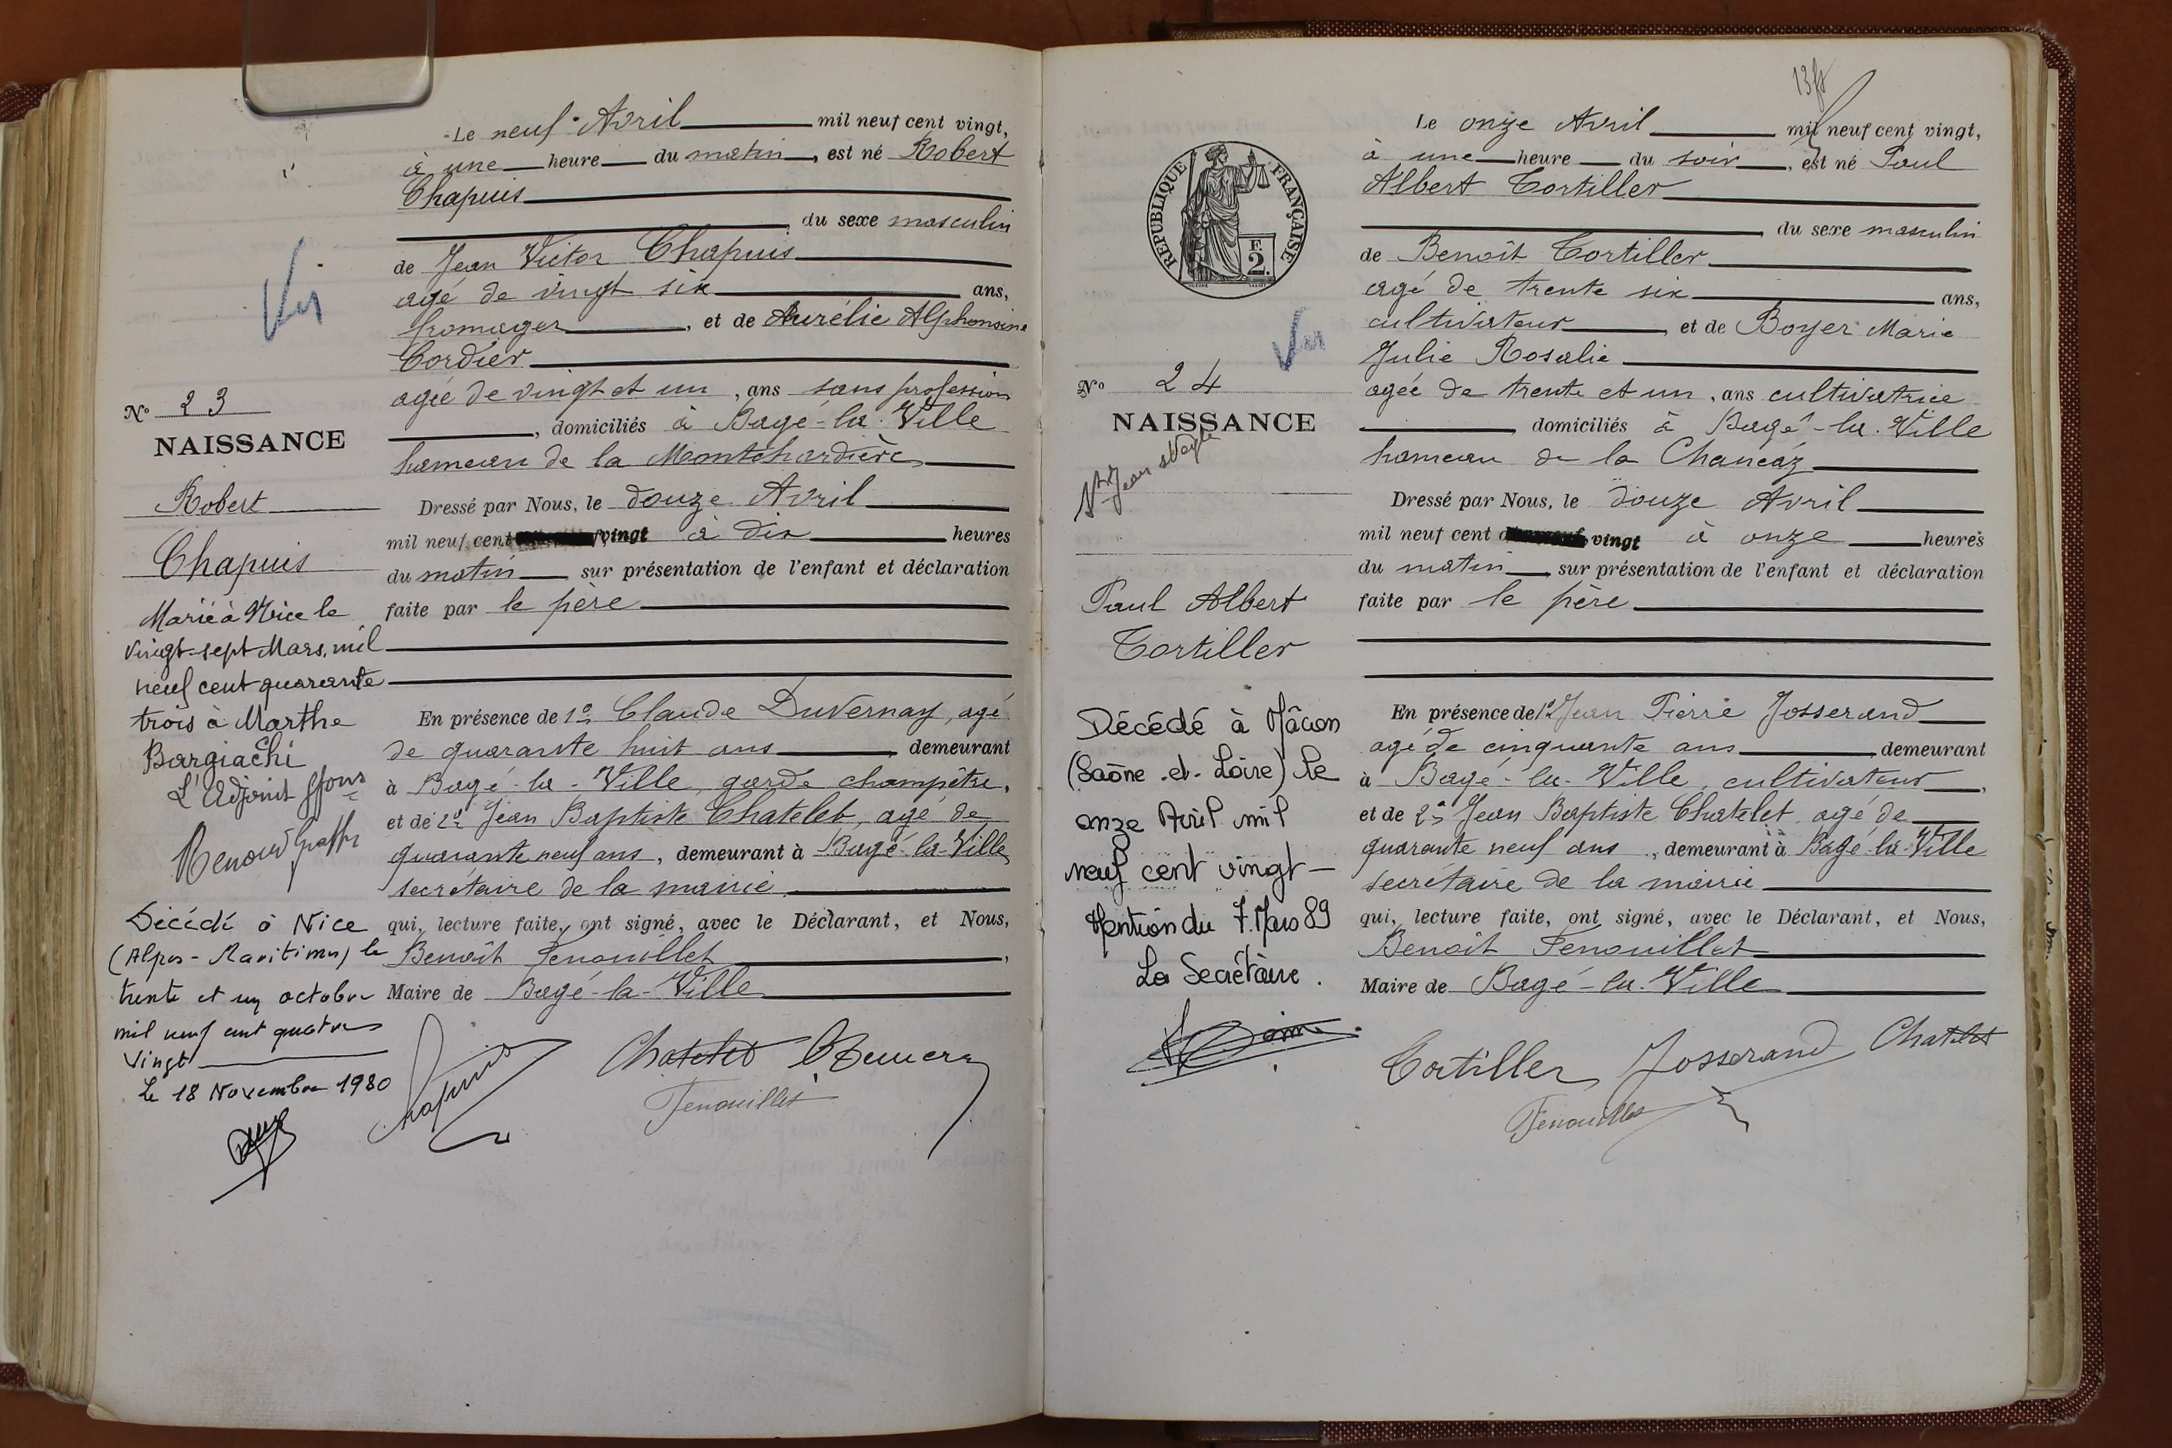 Le neuf Avril mil neuf cent vingt,
à une heure du matin, est né Robert
Chapuis
, du sexe masculin
de Jean Victor Chapuis
agé de vingt six ans,
fromager, et de Aurélie Alphonsine
Cordier
agée de vingt et un, ans sans profession
, domiciliés à Bagé-la-Ville
hameau de la Montchardière
Dressé par Nous, le douze Avril
mil neuf cent vingt à dix heures
du matin sur présentation de l'enfant et déclaration
faite par le père
En présence de 1º Claude Duvernay, agé
de quarante huit ans demeurant
à Bagé-la-Ville, garde champêtre,
et de 2º Jean Baptiste Chatelet, agé de
quarante neuf ans, demeurant à Bagé-la-Ville
secrétaire de la mairie
qui, lecture faite, ont signé, avec le Déclarant, et Nous,
Benoît Fenouillet,
Maire de Bagé-la-Ville
Chapuis Chatelet
Fenouillet
Vu
Nº 23
NAISSANCE
Robert
Chapuis
Marié à Nice le
vingt-sept Mars, mil
neuf cent quarante
trois à Marthe
Bargiachi
L'Adjoint
Décédé à Nice
(Alpes-Maritimes) le
trente et un octobre
mil neuf cent quatre
vingt
Le 18 Novembre 1980
13 ft
Le onze Avril mil neuf cent vingt,
à une heure du soir, est né Paul
Albert Tortiller
du sexe masculin
de Benoît Tortiller
agé de trente six ans,
cultivateur, et de Boyer Marie
Julie Rosalie
agée de trente et un, ans cultivatrice
domiciliés à Bagé-la-Ville
hameau de la Chanéaz
Dressé par Nous, le douze Avril
mil neuf cent vingt à onze heures
du matin sur présentation de l'enfant et déclaration
faite par le père
En présence de 1º Jean Pierre Josserand
agé de cinquante ans, demeurant
à Bagé-la-Ville, cultivateur,
et de 2º Jean Baptiste Chatelet agé de
quarante neuf ans, demeurant à Bagé-la-Ville
secrétaire de la mairie
qui, lecture faite, ont signé, avec le Déclarant, et Nous,
Benoît Fenouillet
Maire de Bagé-la-Ville
Tortiller Josserand Chatelet
Fenouillet
RÉPUBLIQUE FRANÇAISE
F.
2.
Vu
Nº 24
NAISSANCE
St Jean s/Veyle
Paul Albert
Tortiller
Décédé à Mâcon
(Saône-et-Loire) le
onze Avril mil
neuf cent vingt-
Mention du 7. Mars 89
La Secrétaire.